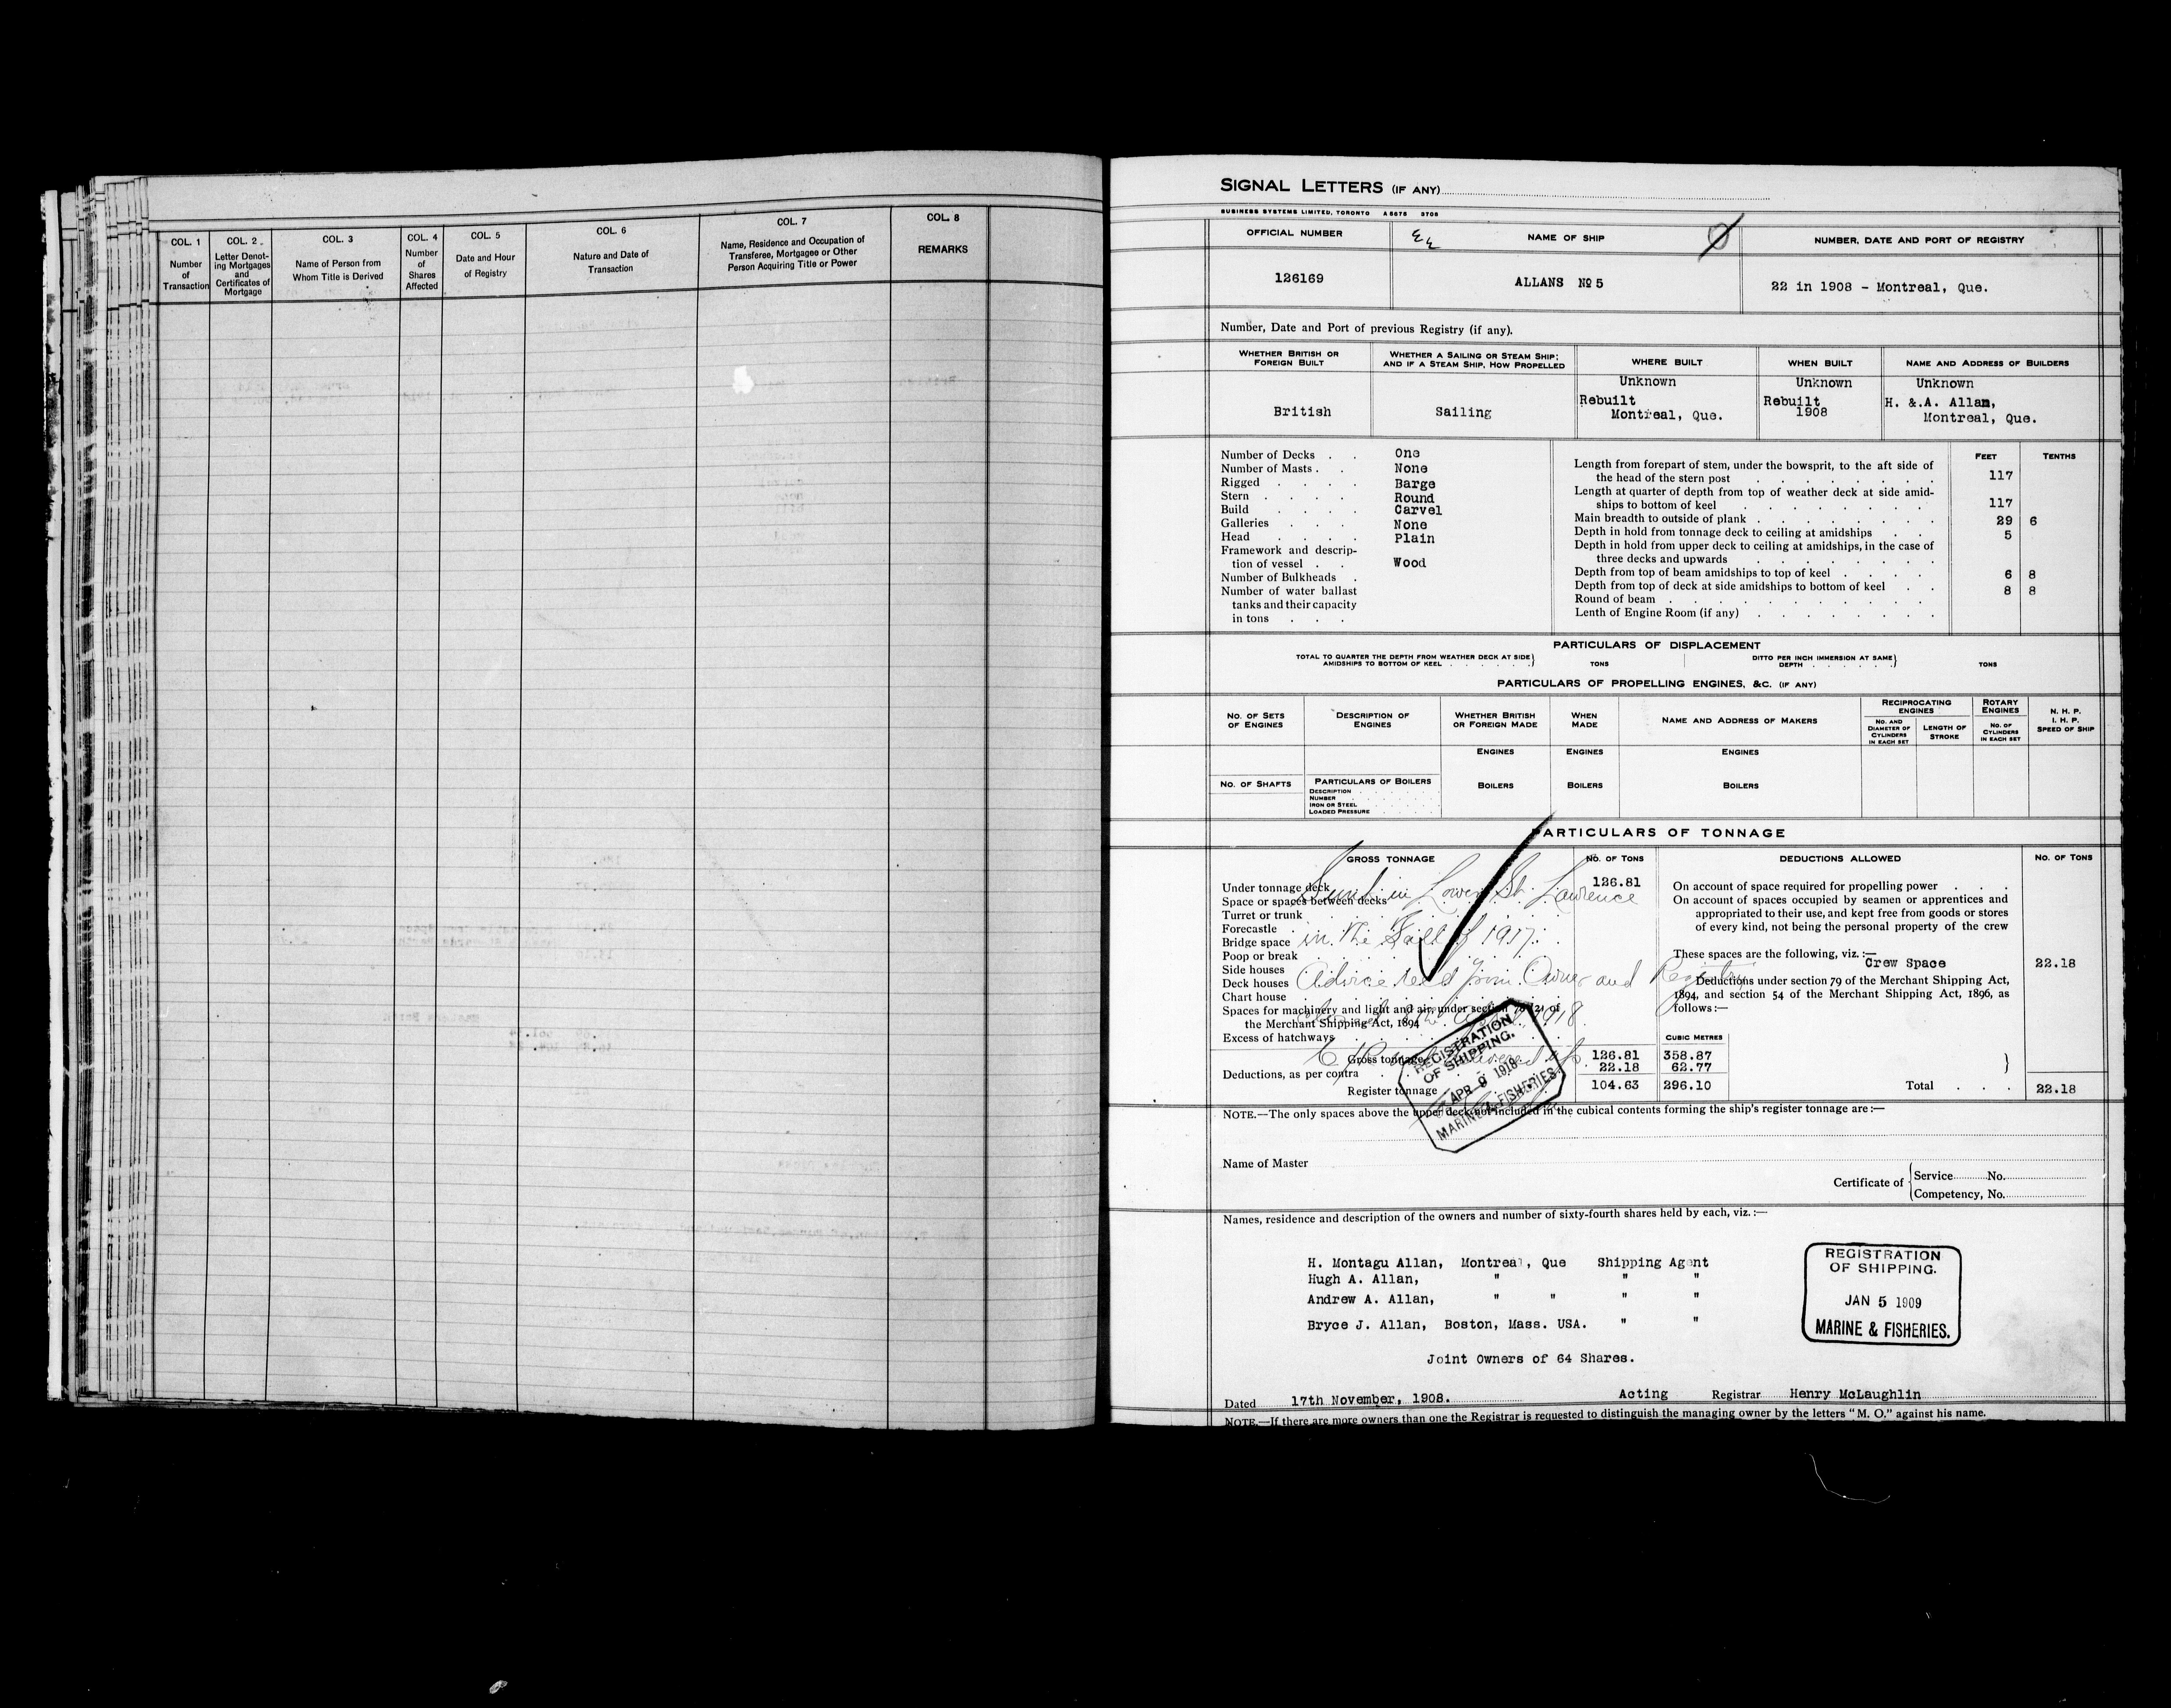 COL. 1
Number
of
Transaction
COL. 2
Letter Denot-
ing Mortgages
and
Certificates of
Mortgage
COL. 3
Name of Person from
Whom Title is Derived
COL. 4
Number
of
Shares
Affected
COL. 5
Date and Hour
of Registry
COL. 6
Nature and Date of
Transaction
COL. 7
Name, Residence and Occupation of
Transferee, Mortgagee or Other
Person Acquiring Title or Power
COL. 8
REMARKS
SIGNAL LETTERS (IF ANY)
BUSINESS SYSTEMS LIMITED, TORONTO A5678 3708
OFFICIAL NUMBER
NAME OF SHIP
NUMBER, DATE AND PORT OF REGISTRY
126169
ALLANS No 5
22 in 1908 - Montreal, Que.
Number, Date and Port of previous Registry (if any).
WHETHER BRITISH OR
FOREIGN BUILT
WHETHER A SAILING OR STEAM SHIP;
AND IF A STEAM SHIP, HOW PROPELLED
WHERE BUILT
WHEN BUILT
NAME AND ADDRESS OF BUILDERS
British
Sailing
Unknown
Rebuilt
Montreal, Que.
Unknown
Rebuilt
1908
Unknown
H. &.A. Allan,
Montreal, Que.
Number of Decks . . One
Number of Masts . . None
Rigged . . . . Barge
Stern . . . . Round
Build . . . . Carvel
Galleries . . . None
Head . . . . Plain
Framework and descrip-
tion of vessel . . Wood
Number of Bulkheads .
Number of water ballast
tanks and their capacity
in tons . . .
FEET TENTHS
Length from forepart of stem, under the bowsprit, to the aft side of
the head of the stern post 117
Length at quarter of depth from top of weather deck at side amid-
ships to bottom of keel 117
Main breadth to outside of plank 29 6
Depth in hold from tonnage deck to ceiling at amidships 5
Depth in hold from upper deck to ceiling at amidships, in the case of
three decks and upwards
Depth from top of beam amidships to top of keel 6 8
Depth from top of deck at side amidships to bottom of keel 8 8
Round of beam
Lenth of Engine Room (if any)
PARTICULARS OF DISPLACEMENT
TOTAL TO QUARTER THE DEPTH FROM WEATHER DECK AT SIDE
AMIDSHIPS TO BOTTOM OF KEEL
TONS
DITTO PER INCH IMMERSION AT SAME
DEPTH
TONS
PARTICULARS OF PROPELLING ENGINES, &C. (IF ANY)
NO. OF SETS
OF ENGINES
DESCRIPTION OF
ENGINES
WHETHER BRITISH
OR FOREIGN MADE
WHEN
MADE
NAME AND ADDRESS OF MAKERS
RECIPROCATING
ENGINES
NO. AND
DIAMETER OF
CYLINDERS
IN EACH SET
LENGTH OF
STROKE
ROTARY
ENGINES
NO. OF
CYLINDERS
IN EACH SET
N. H. P.
I. H. P.
SPEED OF SHIP
ENGINES ENGINES ENGINES
NO. OF SHAFTS
PARTICULARS OF BOILERS
DESCRIPTION
NUMBER
IRON OR STEEL
LOADED PRESSURE
BOILERS BOILERS BOILERS
PARTICULARS OF TONNAGE
GROSS TONNAGE
NO. OF TONS
Under tonnage deck 126.81
Space or spaces between decks
Turret or trunk
Forecastle
Bridge space
Poop or break
Side houses
Deck houses
Chart house
Spaces for machinery and light and air, under section 78 (2) of
the Merchant Shipping Act, 1894
Excess of hatchways
Gross tonnage 126.81 358.87
Deductions, as per contra 22.18 62.77
Register tonnage 104.63 296.10
Sunk in Lower St. Lawrence
in the Fall of 1917.
Advice rec'd from Owner and Registry
REGISTRATION
OF SHIPPING.
APR 9 1918
MARINE & FISHERIES.
DEDUCTIONS ALLOWED
NO. OF TONS
On account of space required for propelling power . . .
On account of spaces occupied by seamen or apprentices and
appropriated to their use, and kept free from goods or stores
of every kind, not being the personal property of the crew
These spaces are the following, viz. :—
Crew Space 22.18
Deductions under section 79 of the Merchant Shipping Act,
1894, and section 54 of the Merchant Shipping Act, 1896, as
follows :—
CUBIC METRES
Total . . . 22.18
NOTE.—The only spaces above the upper deck not included in the cubical contents forming the ship's register tonnage are :—
Name of Master
Certificate of
Service No.
Competency, No.
Names, residence and description of the owners and number of sixty-fourth shares held by each, viz. :—
H. Montagu Allan, Montreal, Que Shipping Agent
Hugh A. Allan, " " "
Andrew A. Allan, " " " "
Bryce J. Allan, Boston, Mass. USA. " "
Joint Owners of 64 Shares.
REGISTRATION
OF SHIPPING.
JAN 5 1909
MARINE & FISHERIES.
Dated 17th November, 1908. Acting Registrar Henry McLaughlin
NOTE.—If there are more owners than one the Registrar is requested to distinguish the managing owner by the letters "M. O." against his name.